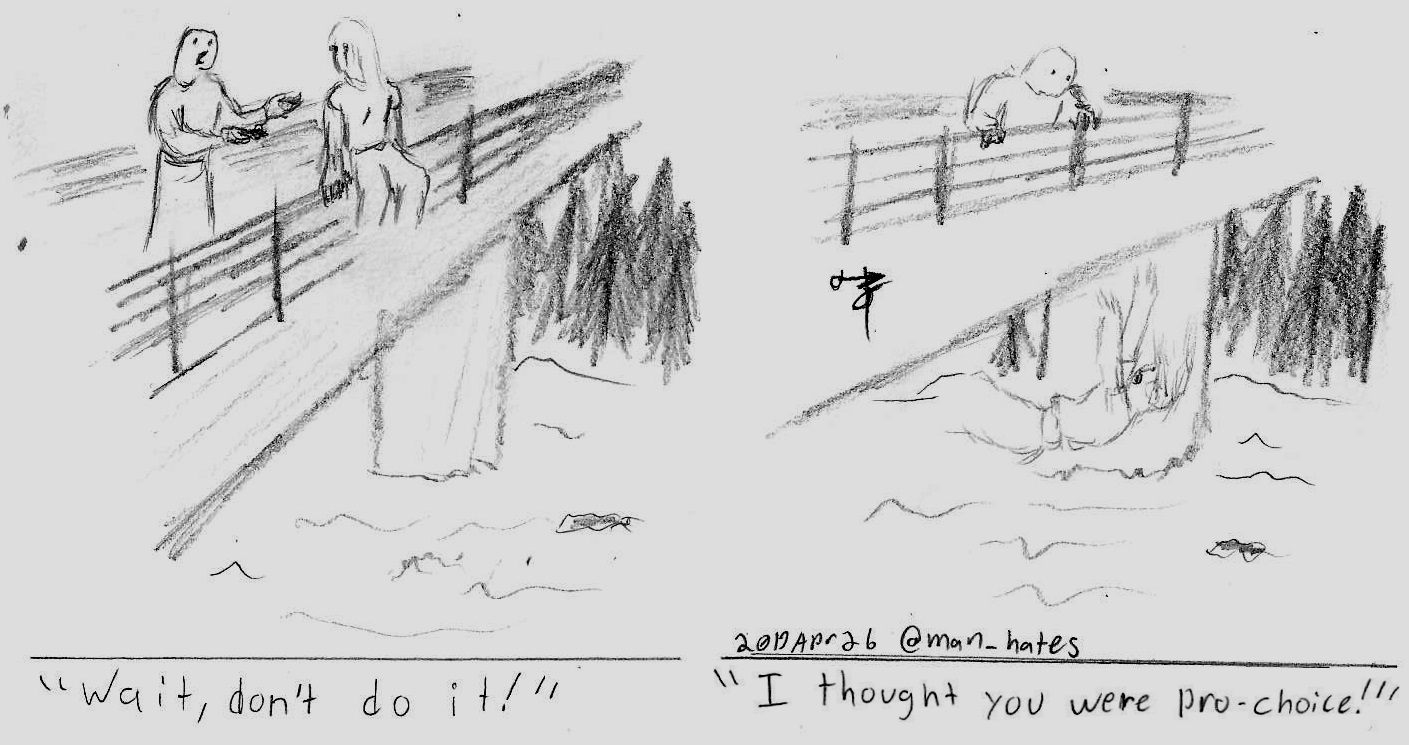 "Wait, don't do it!"
2019Apr26 @man_hates
"I thought you were pro-choice!"